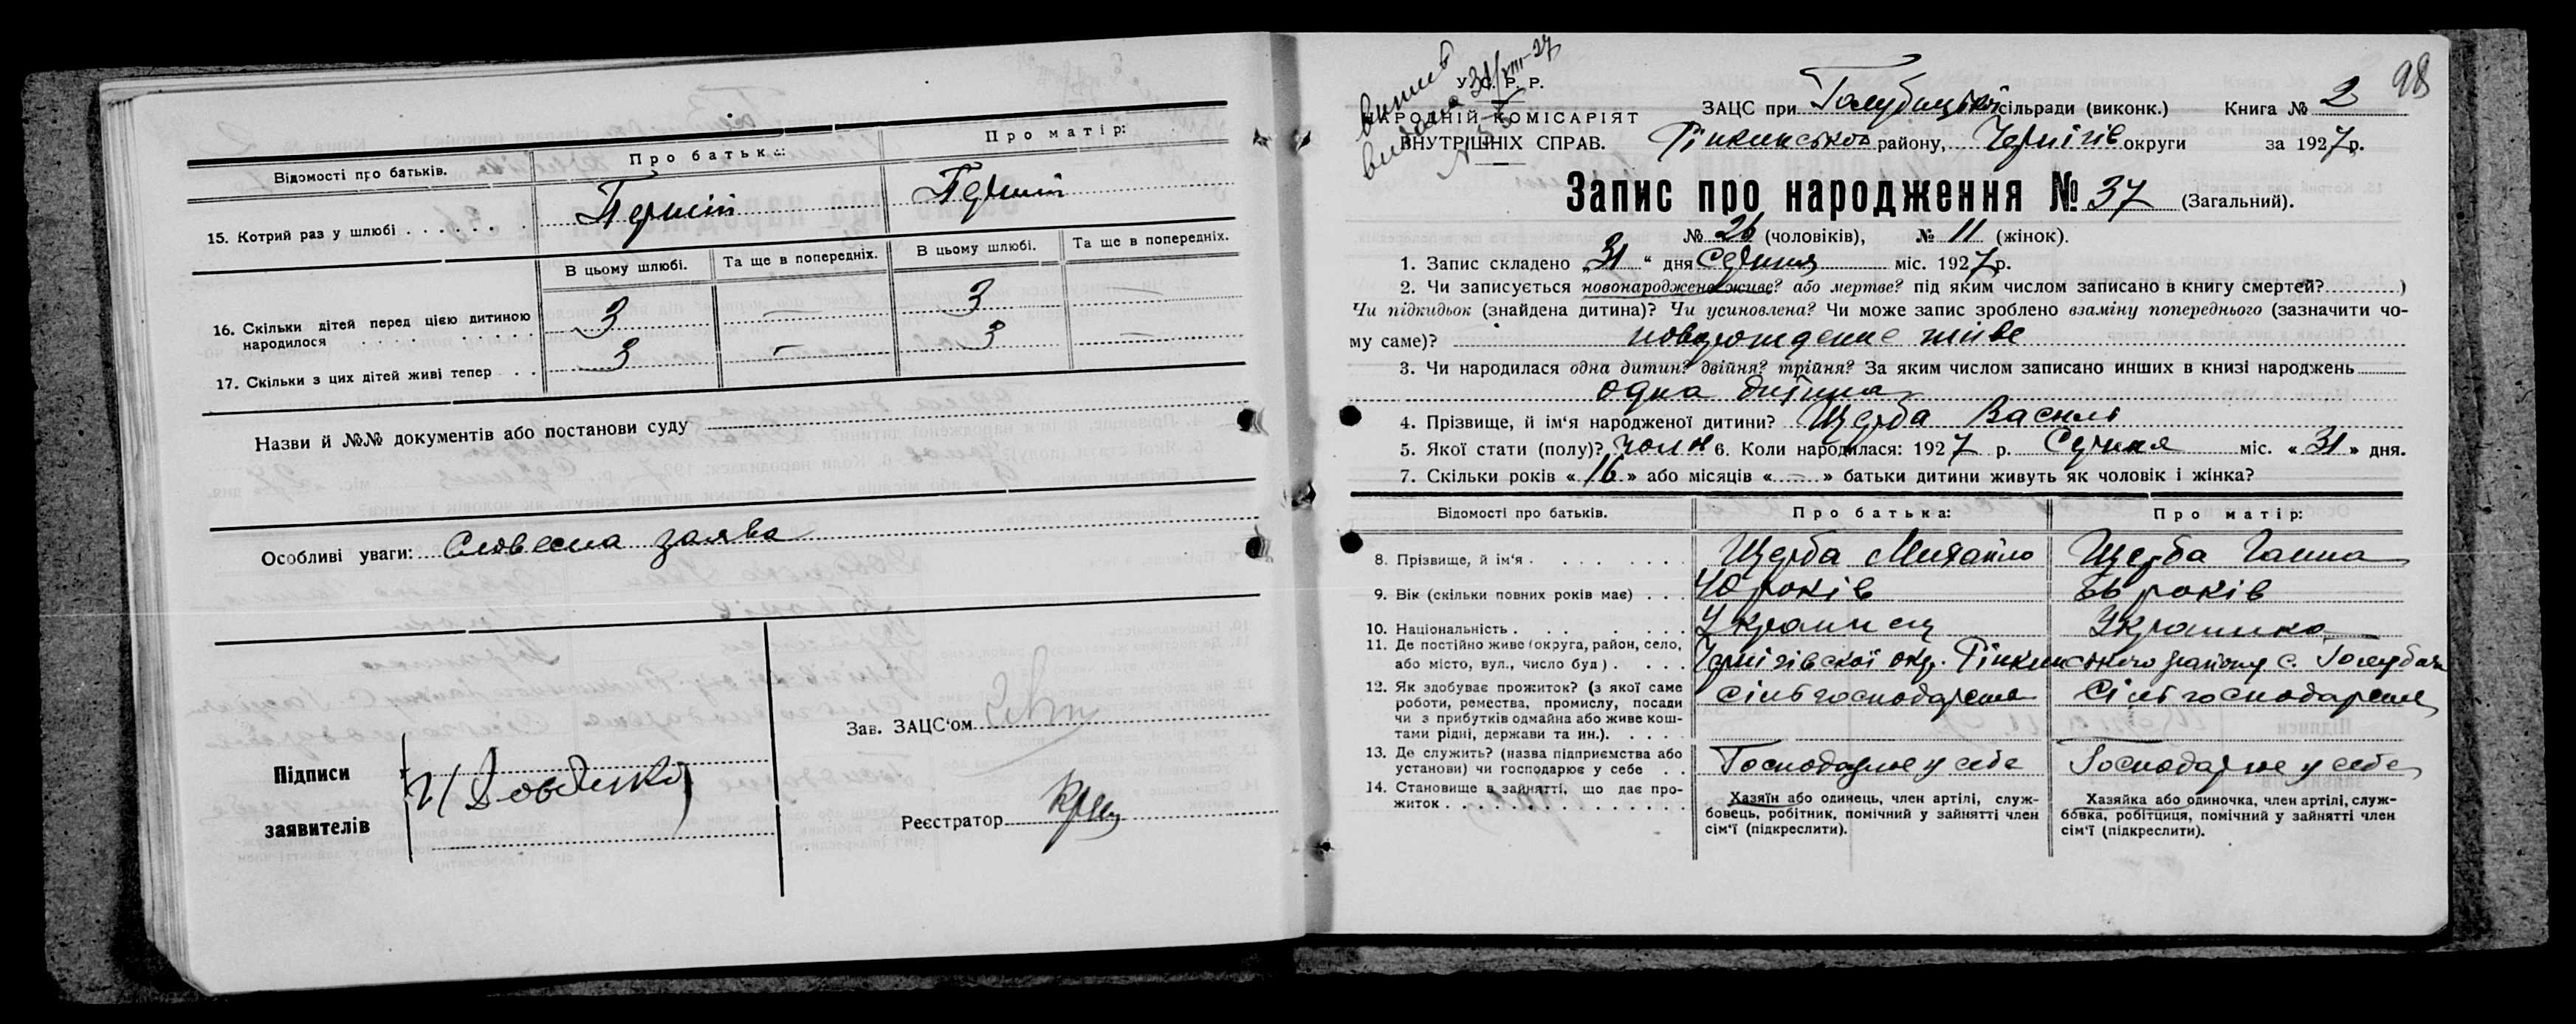 Відомості про батьків.
Про батька:
Про матір:
15. Котрий раз у шлюбі . . . . . . .
Перший
Перший
В цьому шлюбі.
Та ще в попередніх.
В цьому шлюбі.
Та ще в попередніх.
16. Скільки дітей перед цією дитиною
народилося . . . . . . . . .
3 — 3 —
17. Скільки з цих дітей живі тепер . .
3 — 3 —
Назви й №№ документів або постанови суду
Особливі уваги: Словесна заява
Зав. ЗАЦС'ом
Підписи
заявителів
Реєстратор
98
витяг
видано 31/VIII-27
У.С.Р.Р.
НАРОДНІЙ КОМІСАРІЯТ
ВНУТРІШНІХ СПРАВ.
ЗАЦС при сільради (виконк.) Книга № 2
Ріпкинської району, Чернігів округи за 1927 р.
Запис про народження № 37 (Загальний).
№ 26 (чоловіків), № 11 (жінок).
1. Запис складено „31“ дня Січня міс. 1927 р.
2. Чи записується новонароджене живе? або мертве? під яким числом записано в книгу смертей? )
Чи підкидьок (знайдена дитина)? Чи усиновлена? Чи може запис зроблено взаміну попереднього (зазначити чо-
му саме)? живе
3. Чи народилася одна дитин? двійня? трійня? За яким числом записано инших в книзі народжень
одна дитина
4. Прізвище, й ім'я народженої дитини? Щерба Василь
5. Якої стати (полу)? чолов 6. Коли народилася: 1927 р. Січня міс. « 31 » дня.
7. Скільки років « 16 » або місяців « — » батьки дитини живуть як чоловік і жінка?
Відомості про батьків.
Про батька:
Про матір:
8. Прізвище, й ім'я . . . . . .
Щерба Михайло
Щерба Ганна
9. Вік (скільки повних років має) . . .
40 років
36 років
10. Національність . . . . . .
Украинец
Украинка
11. Де постійно живе (округа, район, село,
або місто, вул., число буд) . . . .
Чернігівскої окр. Ріпкинського району с. Голубичі
12. Як здобуває прожиток? (з якої саме
роботи, ремества, промислу, посади
чи з прибутків одмайна або живе кош-
тами рідні, держави та ин.). . . . .
Сільгосподарства
Сільгосподарства
13. Де служить? (назва підприємства або
установи) чи господарює у себе . .
Господарює у себе
Господарює у себе
14. Становище в зайнятті, що дає про-
житок . . . . . . . . . . . . . .
Хазяїн або одинець, член артілі, служ-
бовець, робітник, помічний у зайнятті член
сім'ї (підкреслити).
Хазяйка або одиночка, член артілі, служ-
бовка, робітциця, помічний у зайнятті член
сім'ї (підкреслити).